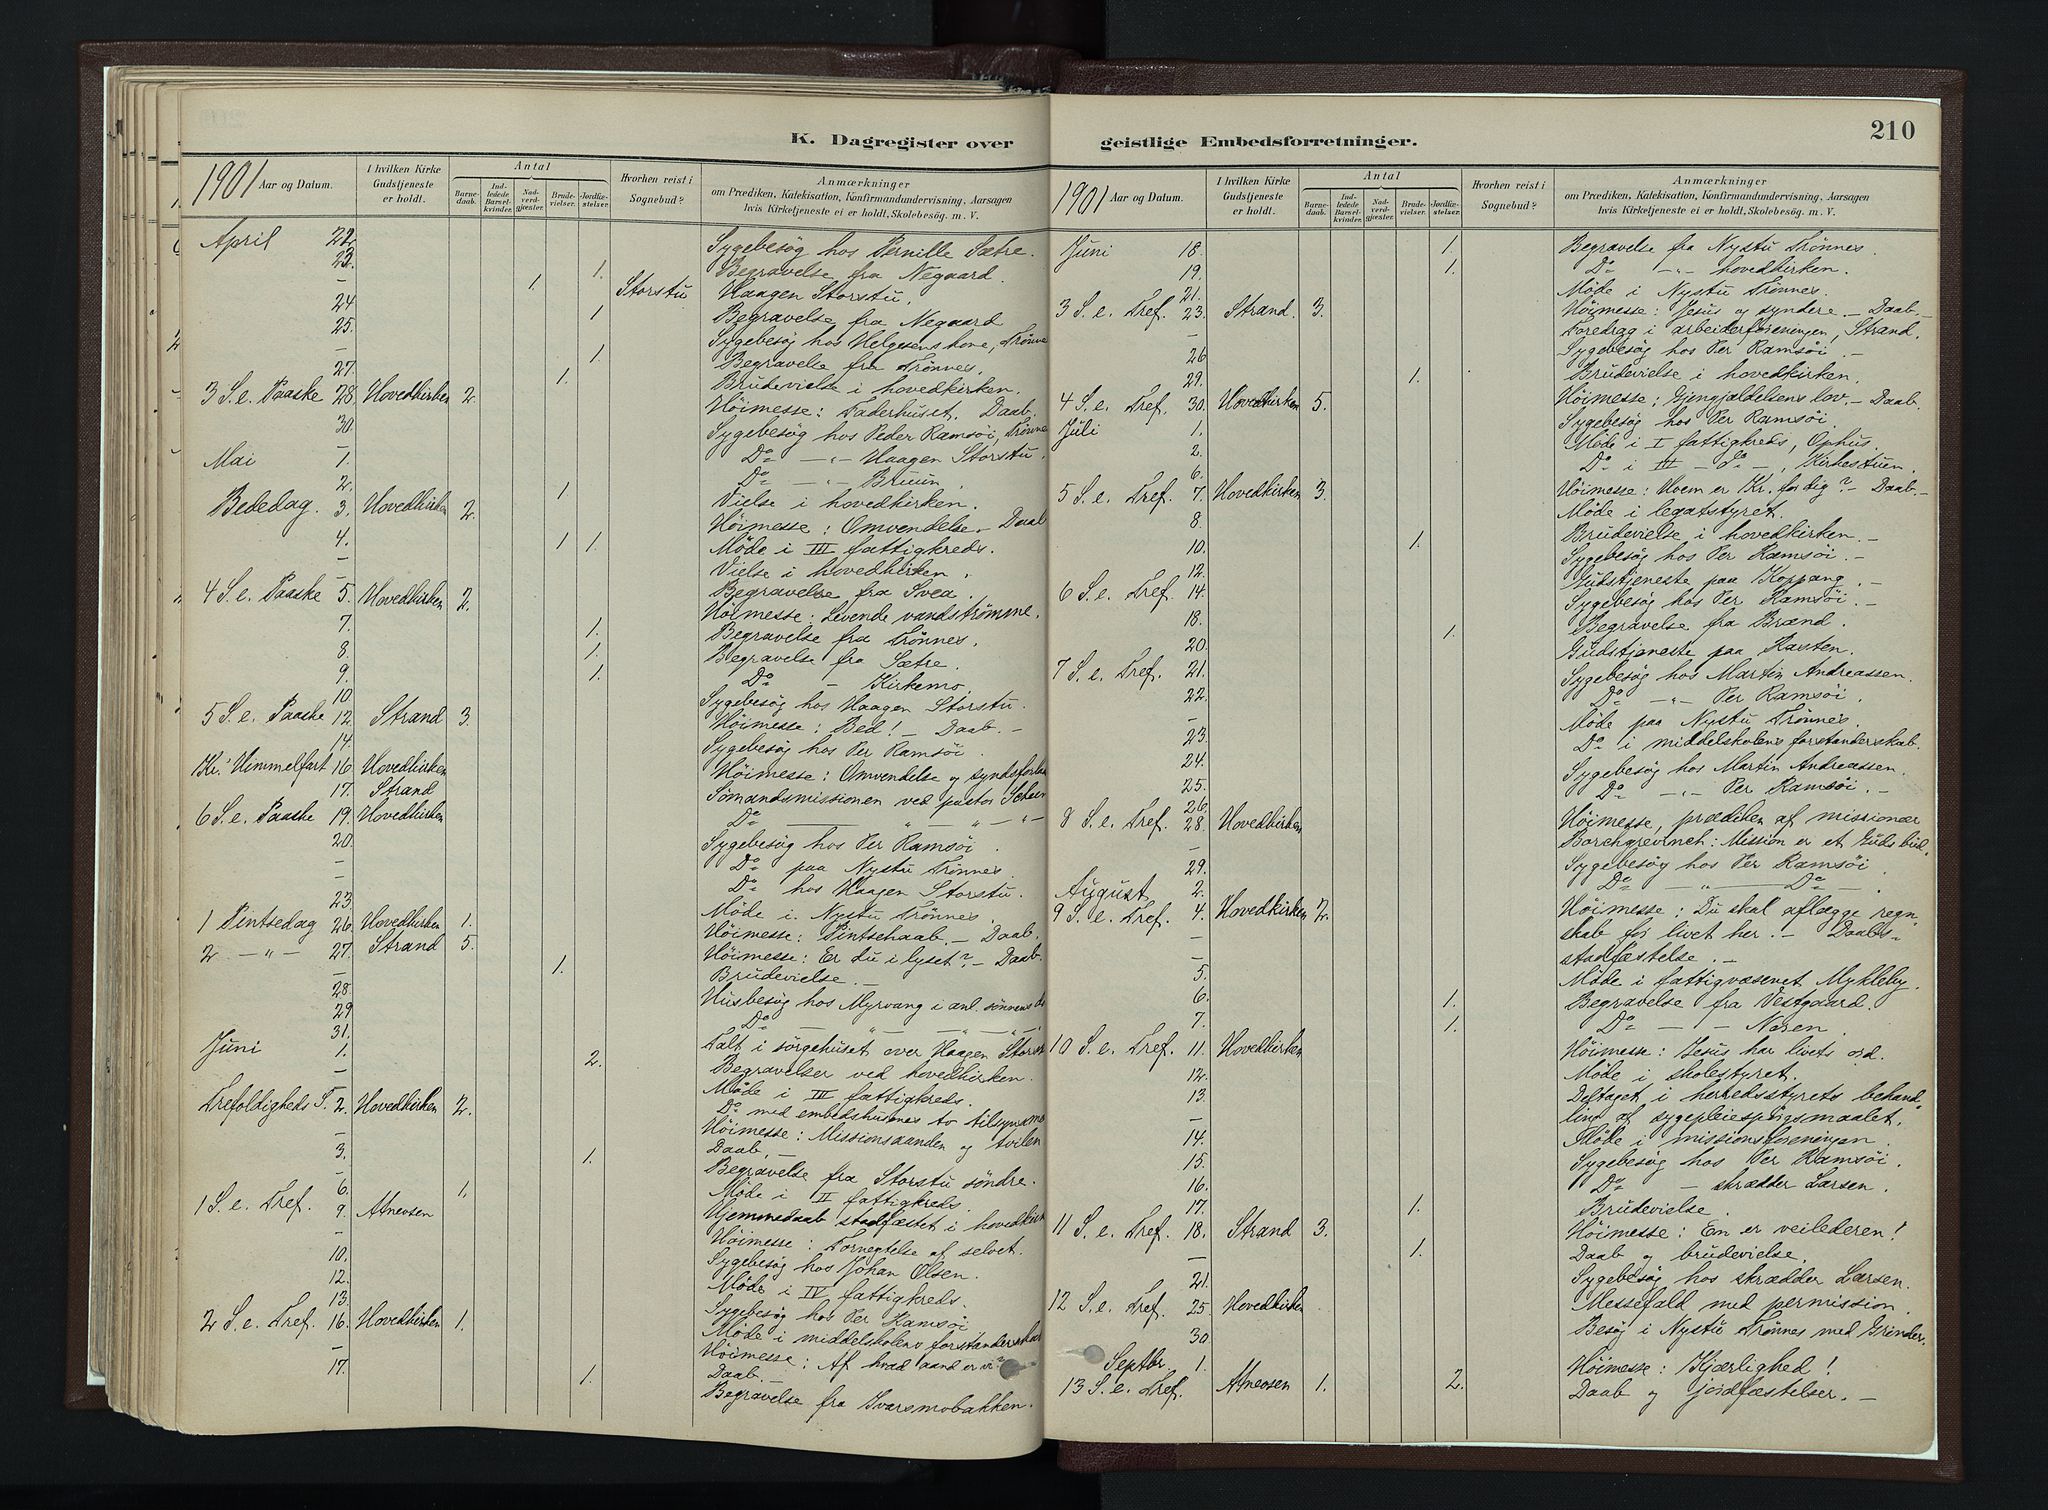 K. Dagregister over
1901 Aar og Datum.
I hvilken Kirke Gudstjeneste er holdt.
Antal
Barnedaab.
Indledede Barselkvinder.
Nadverdgjæster.
Brudevielser.
Jordfæstelser.
Hvorhen reist i Sognebud?
Anmærkninger
om Prædiken, Katekisation, Konfirmandundervisning, Aarsagen
hvis Kirketjeneste ei er holdt, Skolebesög. m. V.
April 22. Sygebesøg hos Pernille Sætre.
23. 1. Begravelse fra Negaard.
— 1. Storstu Haagen Storstu.
24 1 Begravelse fra Negaard
25. Sygebesøg hos Helgesens kone, Trønnes
— 1. Begravelse fra Trønnes.
27. 1. Brudevielse i hovedkirken.
3 S. e. Paaske 28. Hovedkirken 2. Høimesse: Faderhuset. Daab.
30. Sygebesøg hos Peder Ramsøi, Trønnes
— Do —"— Haagen Storstu.
Mai 1. Do —"— Bruun.
2. 1 Vielse i hovedkirken.
Bededag. 3. Hovedkirken 2. Høimesse: Omvendelse. Daab
4. 1 1. Møde i III fattigkreds.
— Vielse i hovedkirken.
— Begravelse fra Svea.
4 S. e. Paaske 5. Hovedkirken 2. Høimesse: Levende vandstrømme.
7. 1. Begravelse fra Trønnes.
8. 1. Begravelse fra Sætre.
9. 1. Do — Kirkemo.
10. Sygebesøg hos Haagen Storstu.
5 S. e. Paaske 12. Strand 3. Høimesse: Bed! — Daab. —
14. Sygebesøg hos Per Ramsøi.
Kr. Himmelfart 16. Hovedkirken Høimesse: Omvendelse og syndsforlad
17. Strand Sømandsmissionen ved pastor
6 S. e. Paaske 19. Hovedkirken Do — " — " — " —
20. Sygebesøg hos Per Ramsøi.
— Do paa Nystu Trønnes.
— Do hos Haagen Storstu.
23. Møde i Nystu Trønnes.
1 Pintsedag 26. Hovedkirken 1. Høimesse: Pintsehaab. — Daab.
2 —"— 27. Strand 5. Høimesse: Er du i lyset? — Daab.
— 1. Brudevielse. —
28. Husbesøg hos Myrvang i anl. sønnens
29 Do — " — " — " —
31. Talt i sørgehuset over Haagen Storstu
Juni 1. 2. Begravelser ved hovedkirken.
— Møde i III fattigkreds.
— Do med embedshusenes to tilsynsmænd
Trefoldigheds S. 2. Hovedkirken 2. Høimesse: Missionsaanden og tvilen
Daab. —
3. 1. Begravelse fra Storstu søndre.
— Møde i II fattigkreds.
6. 1. Hjemmedaab stadfæstet i hovedkirken
1 S. e. Tref. 9. Atneosen Høimesse: Fornegtelse af selvet.
— Sygebesøg hos Johan Olsen.
10. Møde i IV fattigkreds.
12. Sygebesøg hos Per Ramsøi
13. Møde i middelskolens forstanderskab
2 S. e. Tref. 16. Hovedkirken 1. Høimesse: Af hvad aand er vi?
— Daab. —
17. 1. Begravelse fra Ivarsmobakken.
geistlige Embedsforretninger.
210
1901 Aar og Datum.
I hvilken Kirke Gudstjeneste er holdt.
Antal
Barnedaab.
Indledede Barselkvinder.
Nadverdgjæster.
Brudevielser.
Jordfæstelser.
Hvorhen reist i Sognebud?
Anmærkninger
om Prædiken, Katekisation, Konfirmandundervisning, Aarsagen
hvis Kirketjeneste ei er holdt, Skolebesög. m. V.
Juni 18. 1. Begravelse fra Nystu Trønnes.
19. 1. Do —"— hovedkirken.
21. Møde i Nystu Trønnes.
3 S. e. Tref. 23. Strand. 3. Høimesse: Jesus og syndere. — Daab. —
— Foredrag i arbeiderforeningen, Strand.
26 Sygebesøg hos Per Ramsøi. —
29. 1. Brudevielse i hovedkirken.
4 S. e. Tref. 30. Hovedkirken 5. Høimesse: Gjengjældelsens lov. — Daab.
Juli 1. Sygebesøg hos Per Ramsøi.
Møde i I fattigkreds, Ophus.
2. Do i III — do —, Kirkestuen.
6.
5 S. e. Tref. 7. Hovedkirken 3. Høimesse: Hvem er Kr. for dig? — Daab. —
8. Møde i legatstyret.
10. 1. Brudevielse i hovedkirken. —
12. Sygebesøg hos Per Ramsøi. —
6 S. e. Tref. 14. Gudstjeneste paa Koppang. —
Sygebesøg hos Per Ramsøi. —
18. 1. Begravelse fra Brænd.
20. Gudstjeneste paa Kasten.
7 S. e. Tref. 21. Sygebesøg hos Martin Andreassen.
22. Do —"— Per Ramsøi.
— Møde paa Nystu Trønnes.
23. Do i middelskolens forstanderskab.
24. Sygebesøg hos Martin Andreassen.
25. Do —"— Per Ramsøi. —
26.
8 S. e. Tref. 28. Hovedkirken Høimesse, prædiken af missionær
— Borchgrevinck: Mission er et Guds bud.
29. Sygebesøg hos Per Ramsøi
August 2. Do — " — Do —.
9 S. e. Tref. 4. Hovedkirken 2. Høimesse: Du skal aflægge regn
— skab for livet her. — Daabs-
— stadfæstelse. —
5. Møde i fattigvæsenet Mykleby.
6. 1. Begravelse fra Vestgaard.
7. 1. Do — — Noren.
10 S. e. Tref. 11. Hovedkirken Høimesse: Jesus har livets ord.
12. Møde i skolestyret.
13. Deltaget i herredsstyrets behand
— ling af sygepleiespørgsmaalet.
14. Møde i missionsforeningen.
15. Sygebesøg hos Per Ramsøi.
16. Do — skrædder Larsen.
17. 1. Brudevielse.
11 S. e. Tref. 18. Strand 3. Høimesse: En er veilederen!
— 1. Daab og brudevielse.
21. Sygebesøg hos skrædder Larsen.
12 S. e. Tref. 25. Hovedkirken Messefald med permission.
30 Besøg i Nystu Trønnes med
Septbr. 1. Høimesse: Kjærlighed!
13 S. e. Tref. Atneosen 1. 2. Daab og jordfæstelser. —